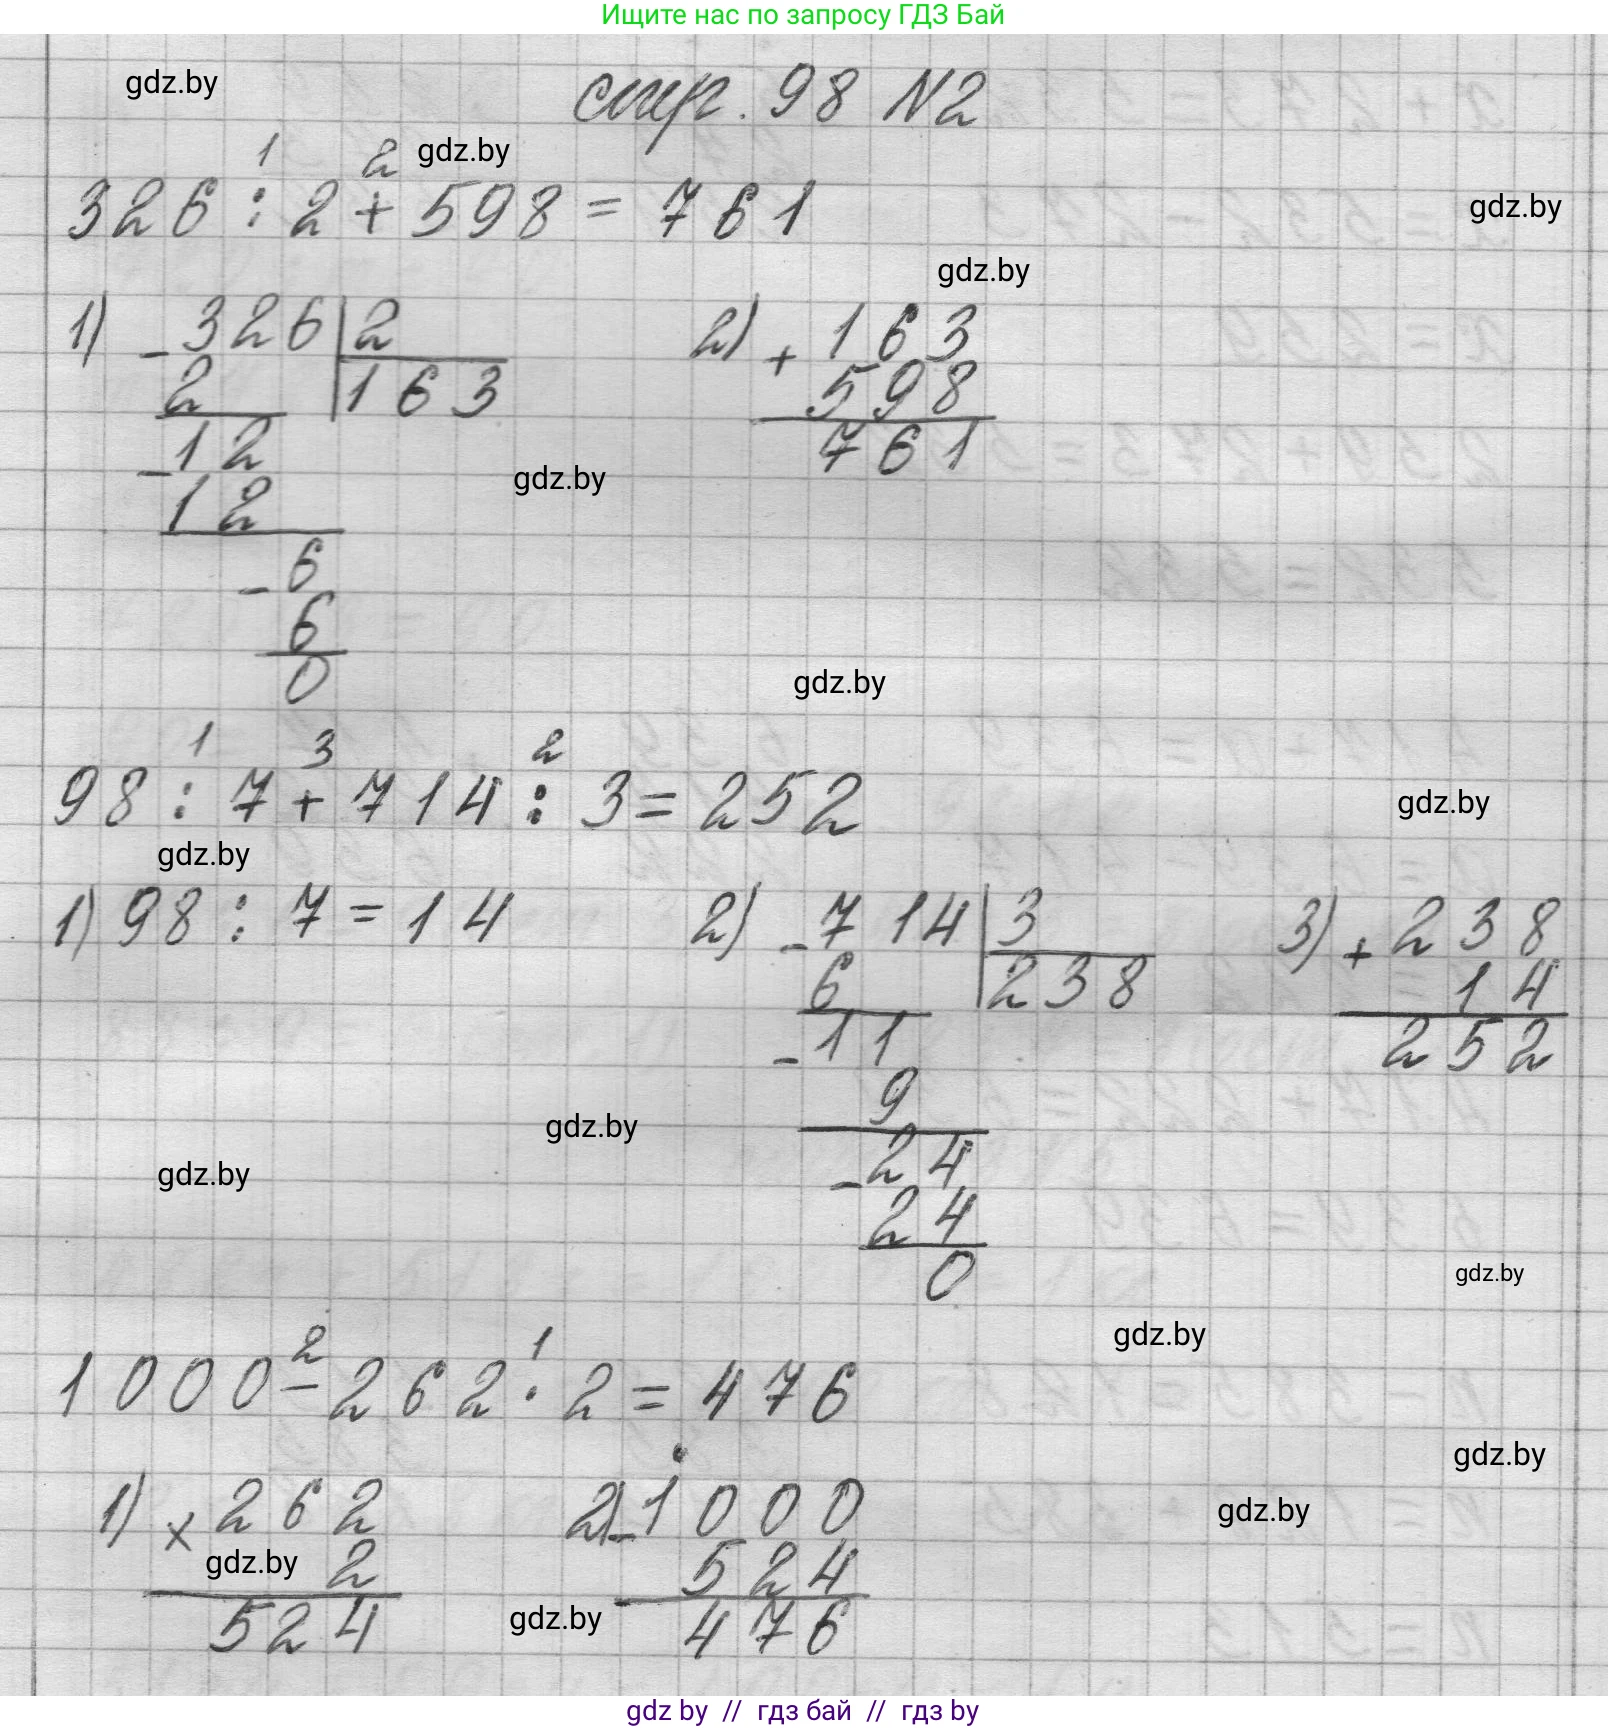 Ищите нас по запросу ГДЗ Бай
gdz.by
стр. 98 №2
1 2 gdz.by
326 : 2 + 598 = 761
gdz.by
gdz.by
1) - 326 | 2 2) + 163
2 | 163 598
- 12 761
gdz.by
12
- 6
6
0
gdz.by
1 3 2
98 : 7 + 714 : 3 = 252
gdz.by
gdz.by
1) 98 : 7 = 14 2) - 714 | 3 3) + 238
6 | 238 14
- 11 252
9
gdz.by
- 24
gdz.by
24
0
gdz.by
gdz.by
2 1
1000 - 262 · 2 = 476
gdz.by
1) × 262 2) - 1000
gdz.by
2 524
gdz.by
524 476
gdz.by
gdz by // гдз бай // гдз by